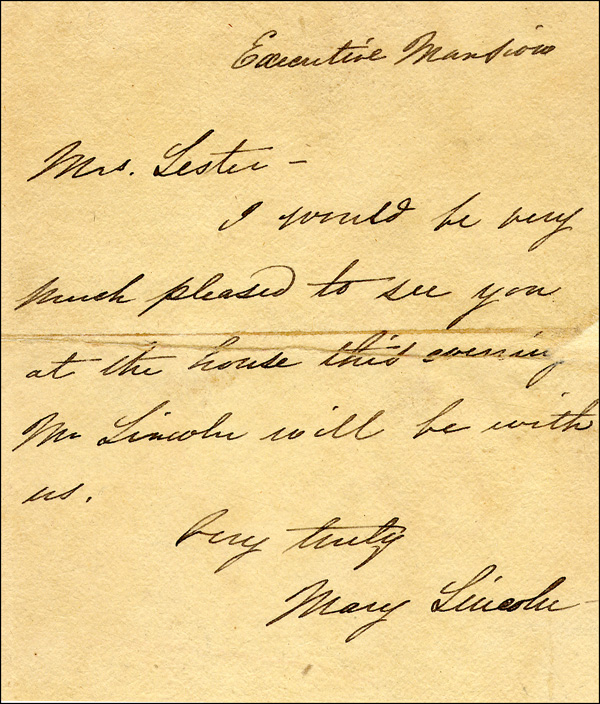 Executive Mansion
Mrs. Lester –
I would be very
much pleased to see you
at the house this evening
Mr Lincoln will be with
us.
Very truly
Mary Lincoln –